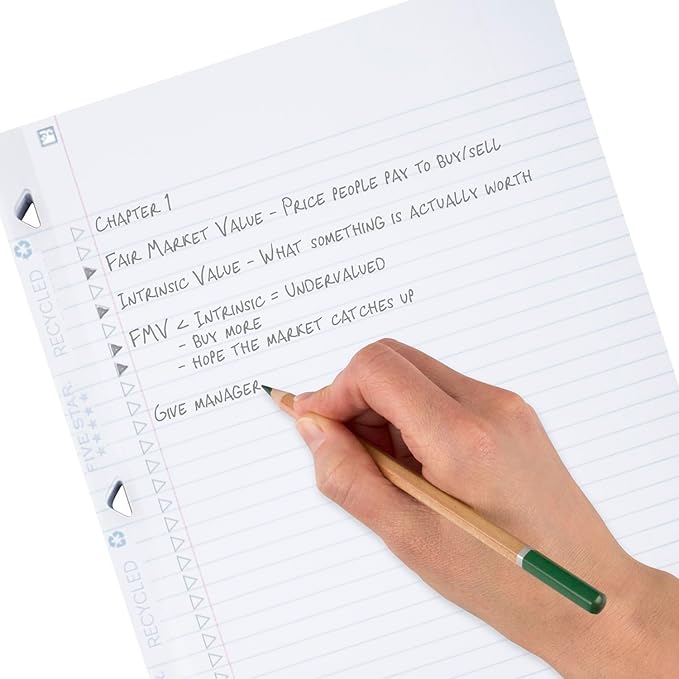 CHAPTER 1
FAIR MARKET VALUE - PRICE PEOPLE PAY TO BUY/SELL
INTRINSIC VALUE - WHAT SOMETHING IS ACTUALLY WORTH
FMV < INTRINSIC = UNDERVALUED
- BUY MORE
- HOPE THE MARKET CATCHES UP
GIVE MANAGER
RECYCLED
FIVE STAR
RECYCLED